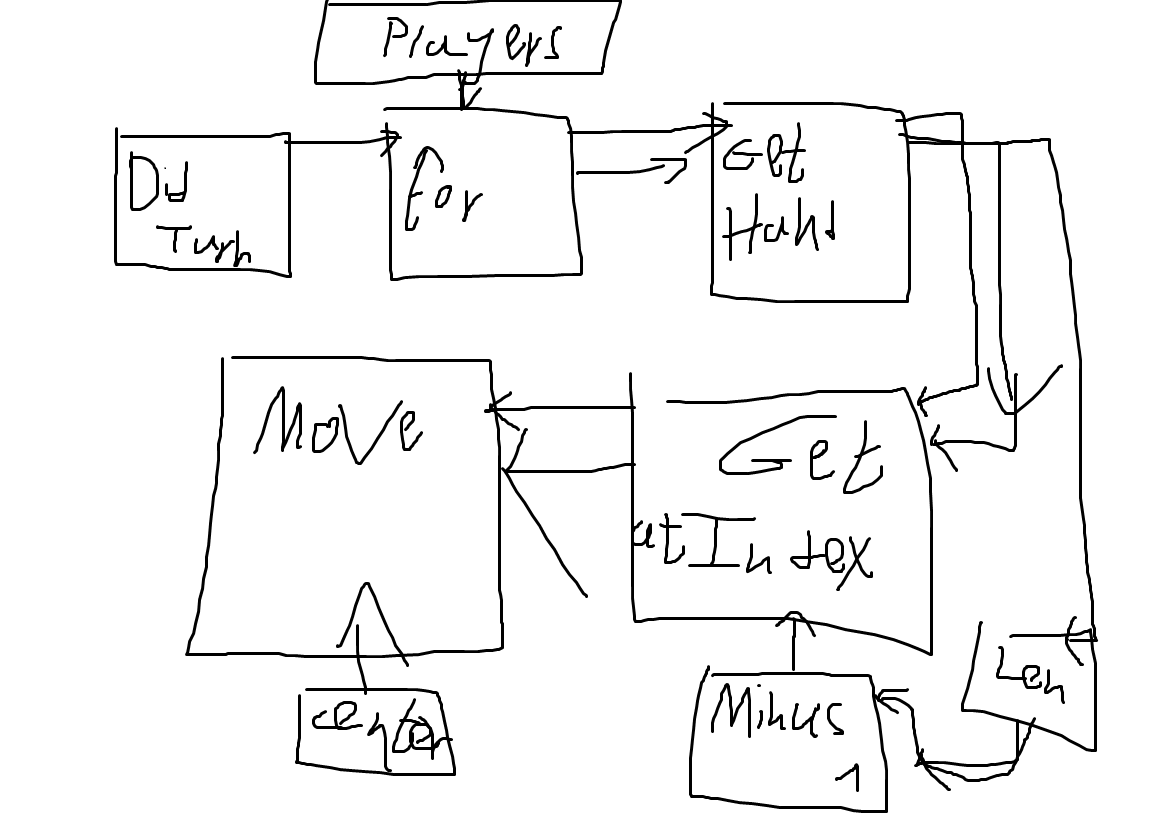 Players
Did
Turn
for
Get
Hand
Move
Get
at Index
Len
center
Minus
1